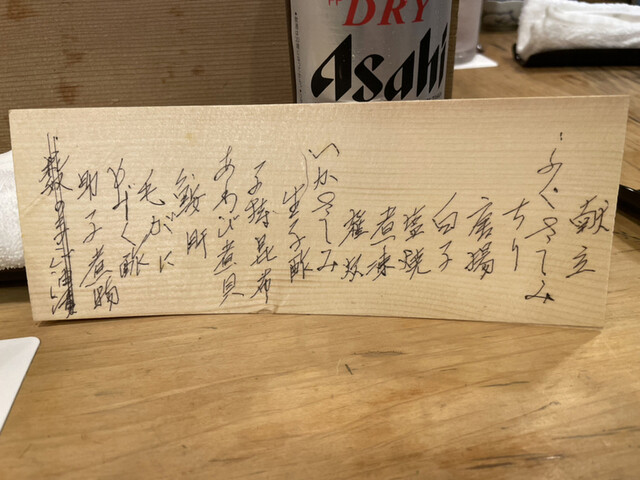 DRY
Asahi
献立
ふぐさしみ
ちり
唐揚
白子
塩焼
煮凍
雑炊
いかさしみ
生子酢
子持昆布
あわび煮貝
鮟肝
毛がに
もずく酢
助子煮